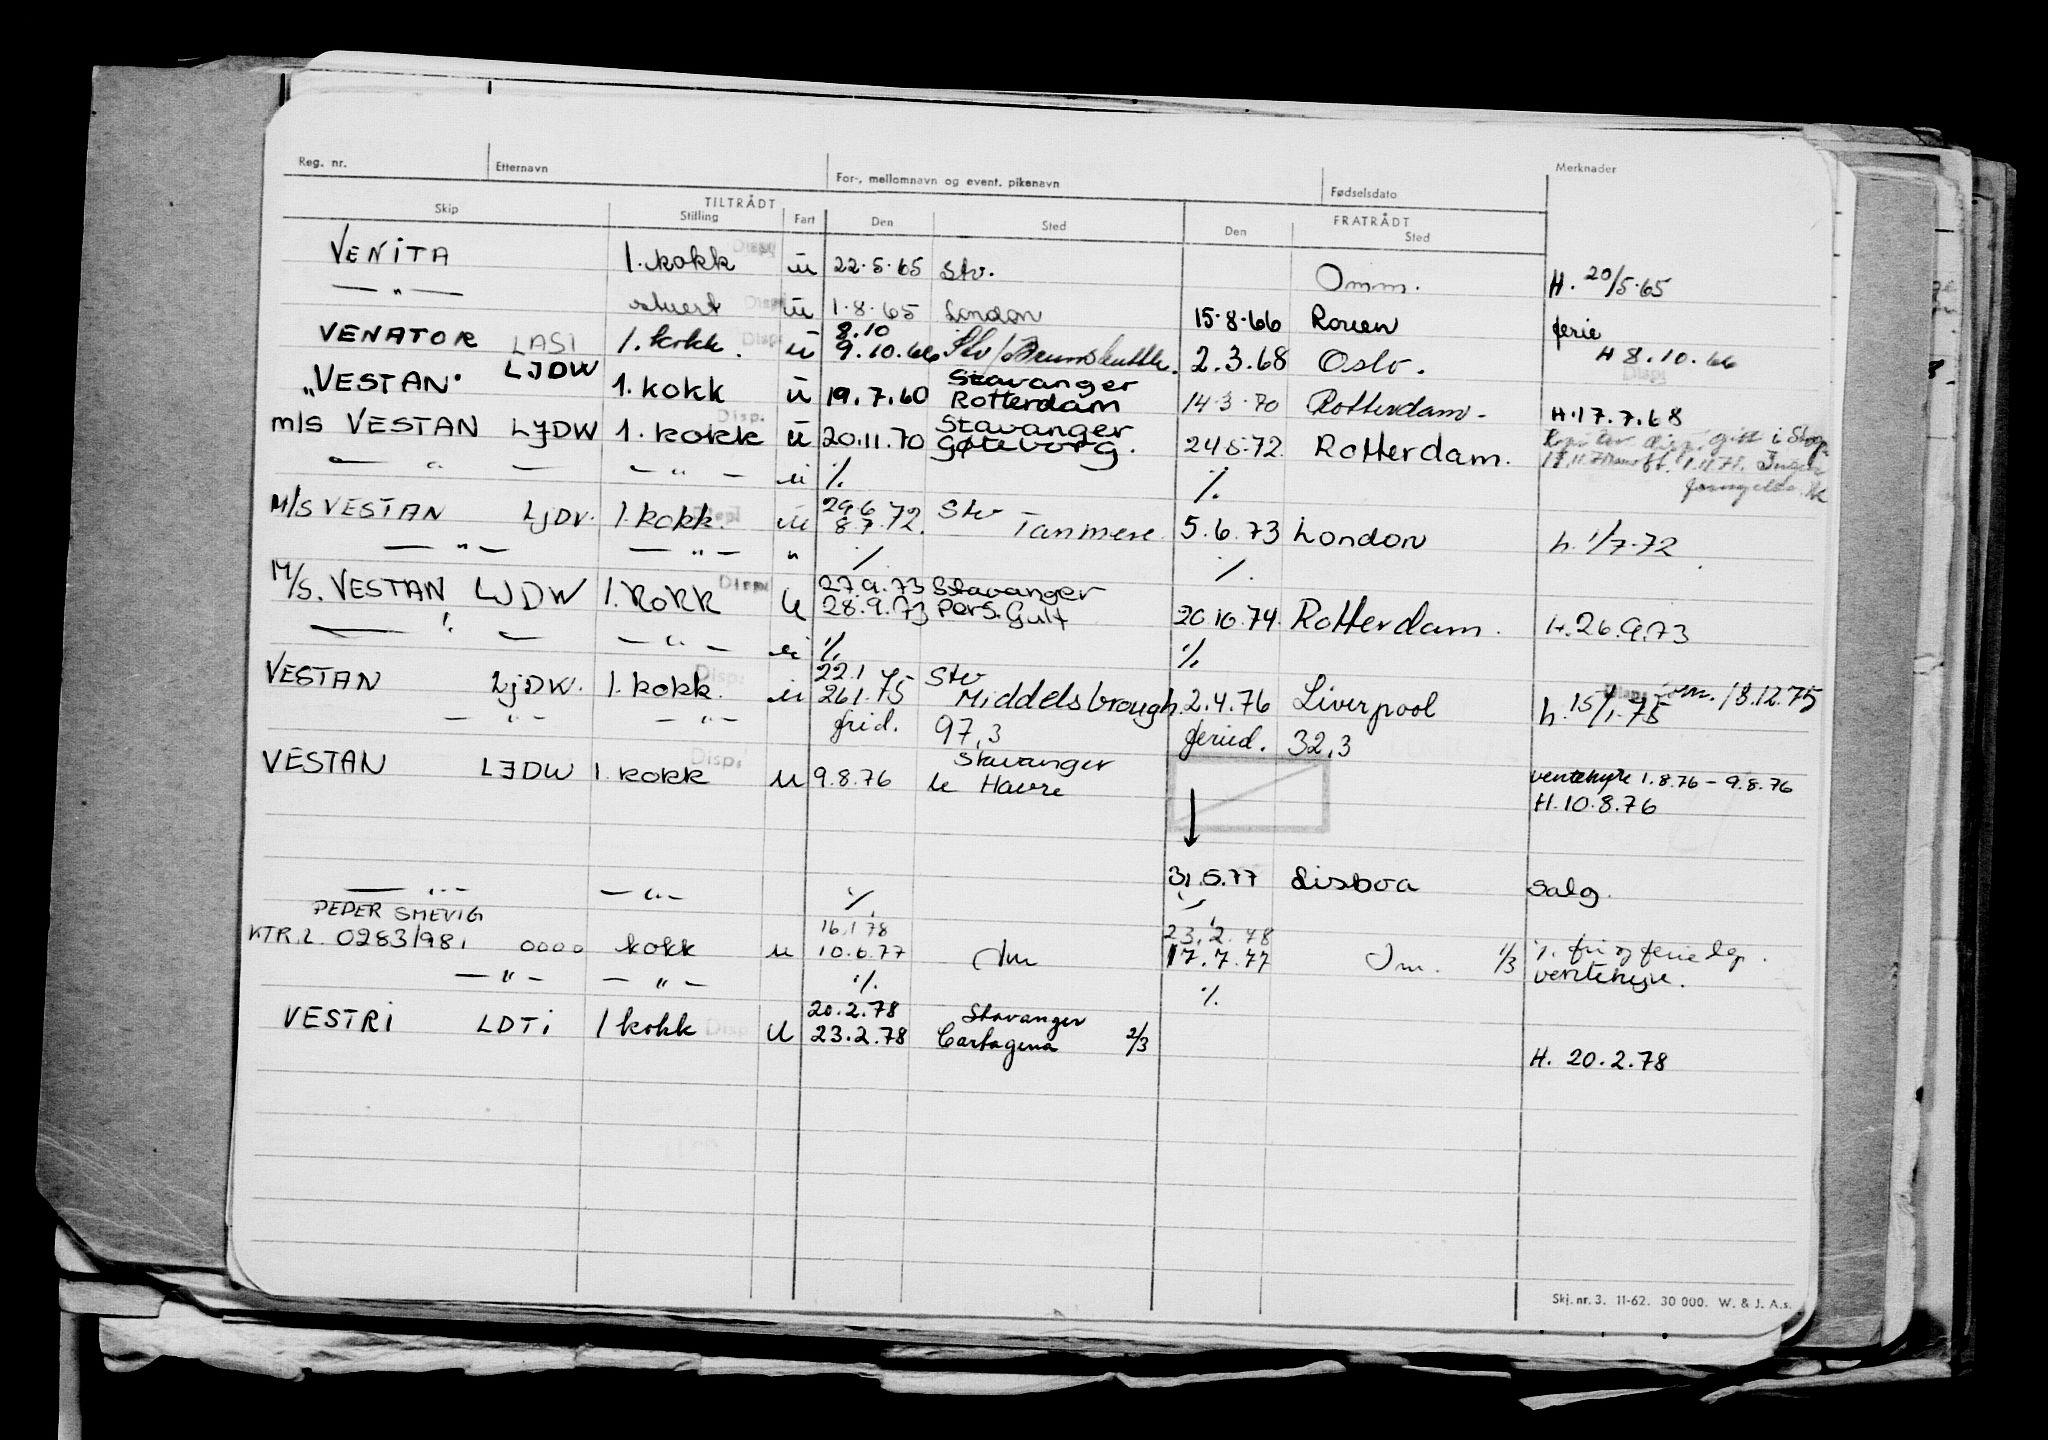 Reg. nr. Etternavn For-, mellomnavn og event. pikenavn Fødselsdato Merknader
TILTRÅDT FRATRÅDT
Skip Stilling Fart Den Sted Den Sted
VENITA 1. kokk Disp. u 22.5.65 Stv. Omm. H. 20/5.65
— " — stuert Disp. u 1.8.65 London 15.8.66 Rouen ferie
VENATOR LASI 1. kokk. Disp. u 8.10 9.10.66 Stv / 2.3.68 Oslo. H 8.10.66
Disp.
"VESTAN" LJDW 1. kokk u 19.7.60 Stavanger Rotterdam 14.3.70 Rotterdam. H.17.7.68
M/S VESTAN LJDW 1. kokk Disp. u 20.11.70 Stavanger Gøteborg. 24.5.72 Rotterdam.
— " — — " — u %. %.
M/S VESTAN LJDV. 1. kokk. Disp. u 29.6 8.7.72. Stv 5.6.73 London h. 1/7.72
— " — — " — " %. %.
M/S. VESTAN LJDW 1. kokk Disp. u 27.9.73 28.9.73 Stavanger Pers. Gulf 20.10.74. Rotterdam. H. 26.9.73
— " — — " — u %. %.
VESTAN LJDW. 1. kokk. Disp. u 22.1 26.1.75 Stv Middelsbrough. 2.4.76 Liverpool h. 15/1.75 18.12.75
— " — — " — frid. 97,3 feried. 32,3
VESTAN LJDW 1. kokk Disp. u 9.8.76 Stavanger le Havre ventehyre 1.8.76 – 9.8.76
H. 10.8.76
31.5.77 Lisboa Salg.
— " — — " — %. %.
PEDER SMEVIG 16.1.78 23.2.78
KTR.L. 0283/981 0000 kokk u 10.6.77 17.7.77 1/3 %. fri og ferie
— " — — " — %. %. ventehyre.
VESTRI LDTI 1 kokk Disp. u 20.2.78 23.2.78 Stavanger Cartagena 2/3 H. 20.2.78
Skj. nr. 3. 11-62. 30 000. W. & J. A.s.